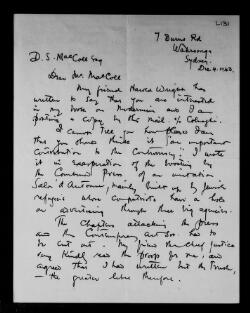 L131
7 Burns Rd
Wahroonga
Sydney.
Dec 4. 1943.
D. S. MacColl Esq
Dear Mr. MacColl
My friend Harold Wright has
written to say that you are interested
in my book on Modernism and I am
posting a copy by this mail. c/o Colnaghi.
I cannot tell you how pleased I am
that you should think it an important
contribution to the controversy. I wrote
it in exasperation at the boosting by
the Combined Press of an imitation
Salon d'Automne, mainly built up by Jewish
refugees whose compatriots have a hold
on advertising through their big agencies.
The Chapters attacking the press
and the Contemporary Art Soc. had to
be cut out. My friend the Chief Justice
very kindly read the proofs for me, and
agreed that I had written but the truth,
— the greater libel therefore.